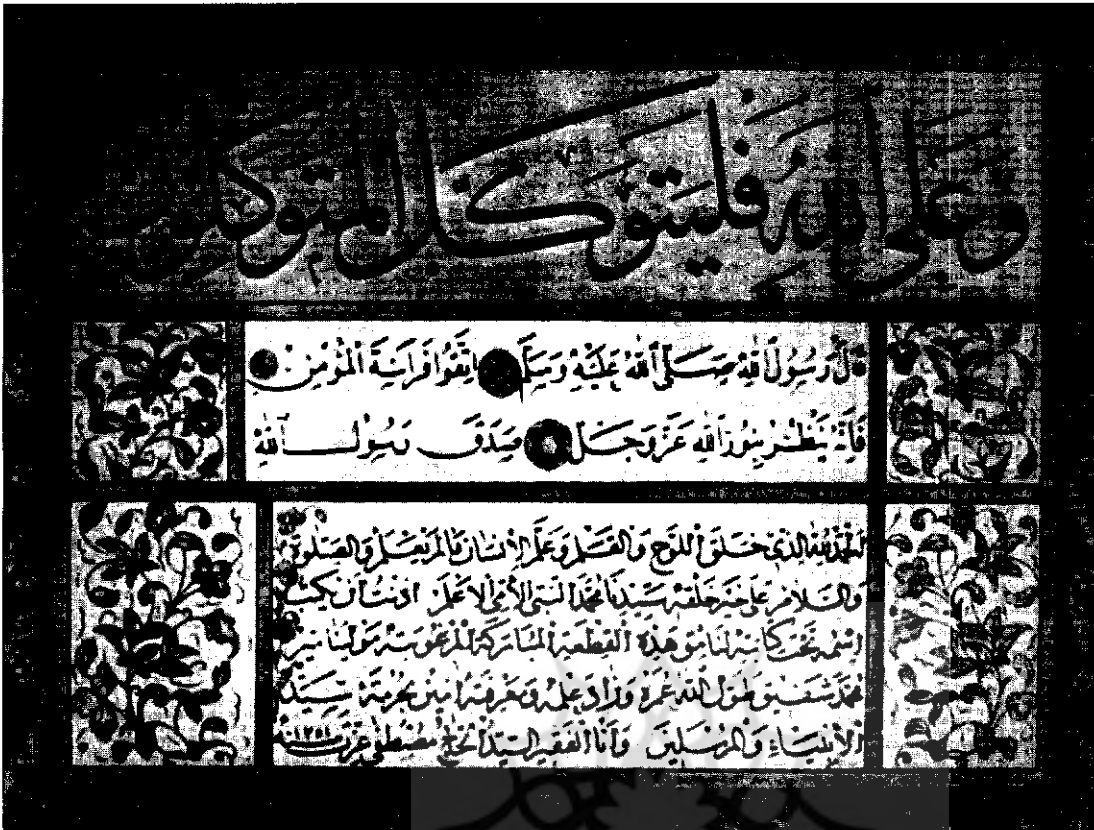 وعلى الله فليتوكل المتوكلون
قال رسول الله صلى الله عليه وسلم اتقوا فراسة المؤمن
فانه ينظر بنور الله عز وجل صدق رسول الله
الحمد لله الذي خلق اللوح والقلم وعلم الانسان مالم يعلم والصلوة
والسلام على خير خلقه سيدنا محمد النبي الامي الاعلم اذنت ان يكتب
اسمه تحت كتابته لنامق هذه القطعة المباركة المرغوبة
محمد شفيق طول الله عمره وزاد علمه ومعرفته امين بحرمة سيد
الانبياء والمرسلين وانا الفقير السيد الحاج مصطفى عزت